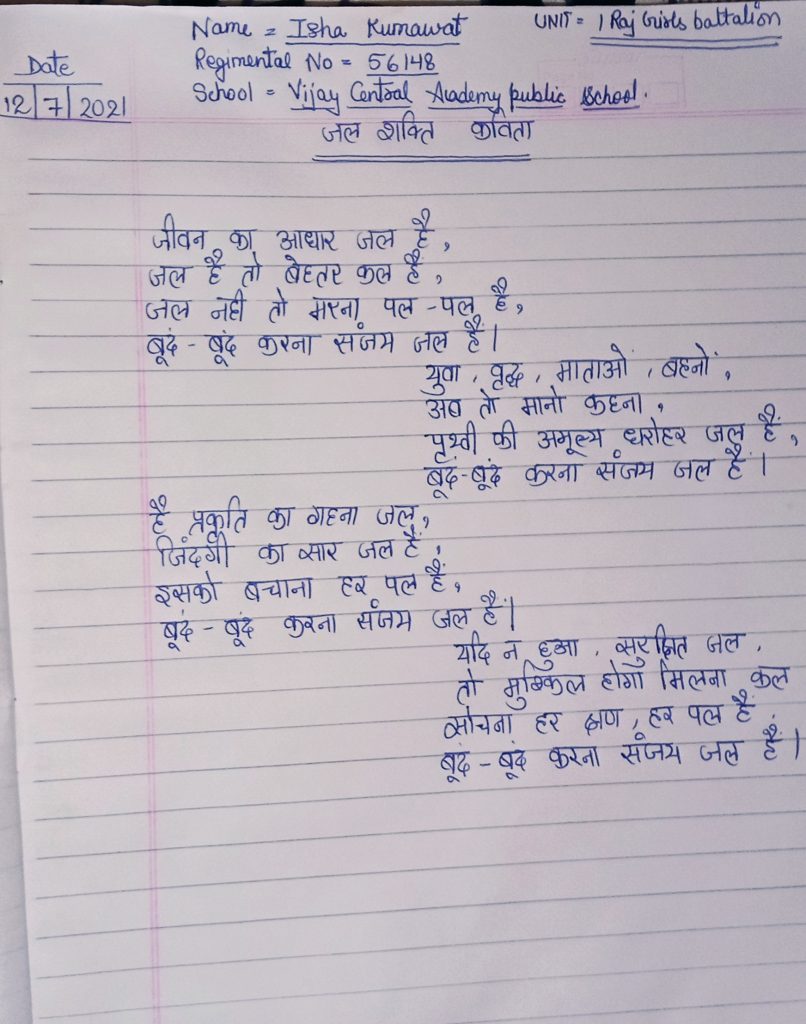 Name = Isha Kumawat UNIT = 1 Raj Girls battalion
Regimental No = 56148
Date
School = Vijay Central Academy public school.
12/7/2021
जल शक्ति कविता
जीवन का आधार जल है,
जल है तो बेहतर कल है,
जल नही तो मरना पल -पल है,
बूदं - बूदं करना संजय जल है।
युवा, वृद्ध, माताओं, बहनों,
अब तो मानो कहना,
पृथ्वी की अमूल्य धरोहर जल है,
बूदं-बूदं करना संजय जल है।
है प्रकृति का गहना जल,
जिंदगी का सार जल है,
इसको बचाना हर पल है,
बूदं - बूदं करना संजय जल है।
यदि न हुआ, सुरक्षित जल,
तो मुश्किल होगा मिलना कल
सोचना हर क्षण, हर पल है,
बूदं - बूदं करना संजय जल है।